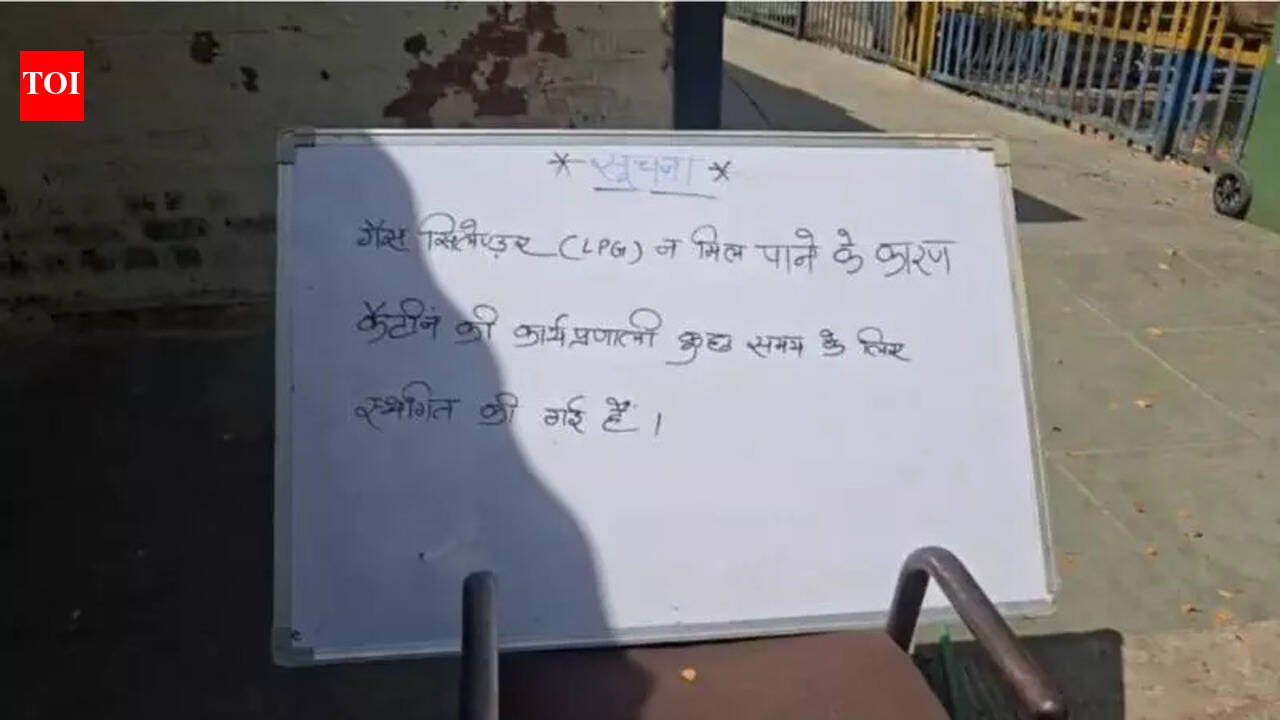 TOI
* सूचना *
गैस सिलेण्ड़र (LPG) न मिल पाने के कारण
कैटीनं की कार्यप्रणाली कुछ समय के लिए
स्थगित की गई हैं।